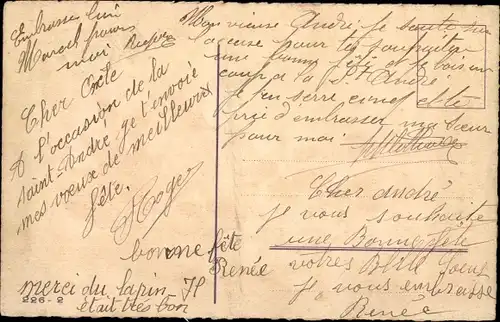 Embrasse
Marcel pour
moi Roger
Cher Oncle
A l'occasion de la
saint-André je t'envoie
mes vœux de meilleure
fête.
Roger
bonne fête
Renée
merci du lapin
était très bon
226-2
Mon vieux André je
pour te souhaiter
une bonne fête et je bois un
coup a la St André
Je t'en serre cinq et te
prie d'embrasser ma sœur
pour moi
Cher andré
je vous souhaite
une Bonne fête
votre Belle Soeur
je vous embrasse
Renée